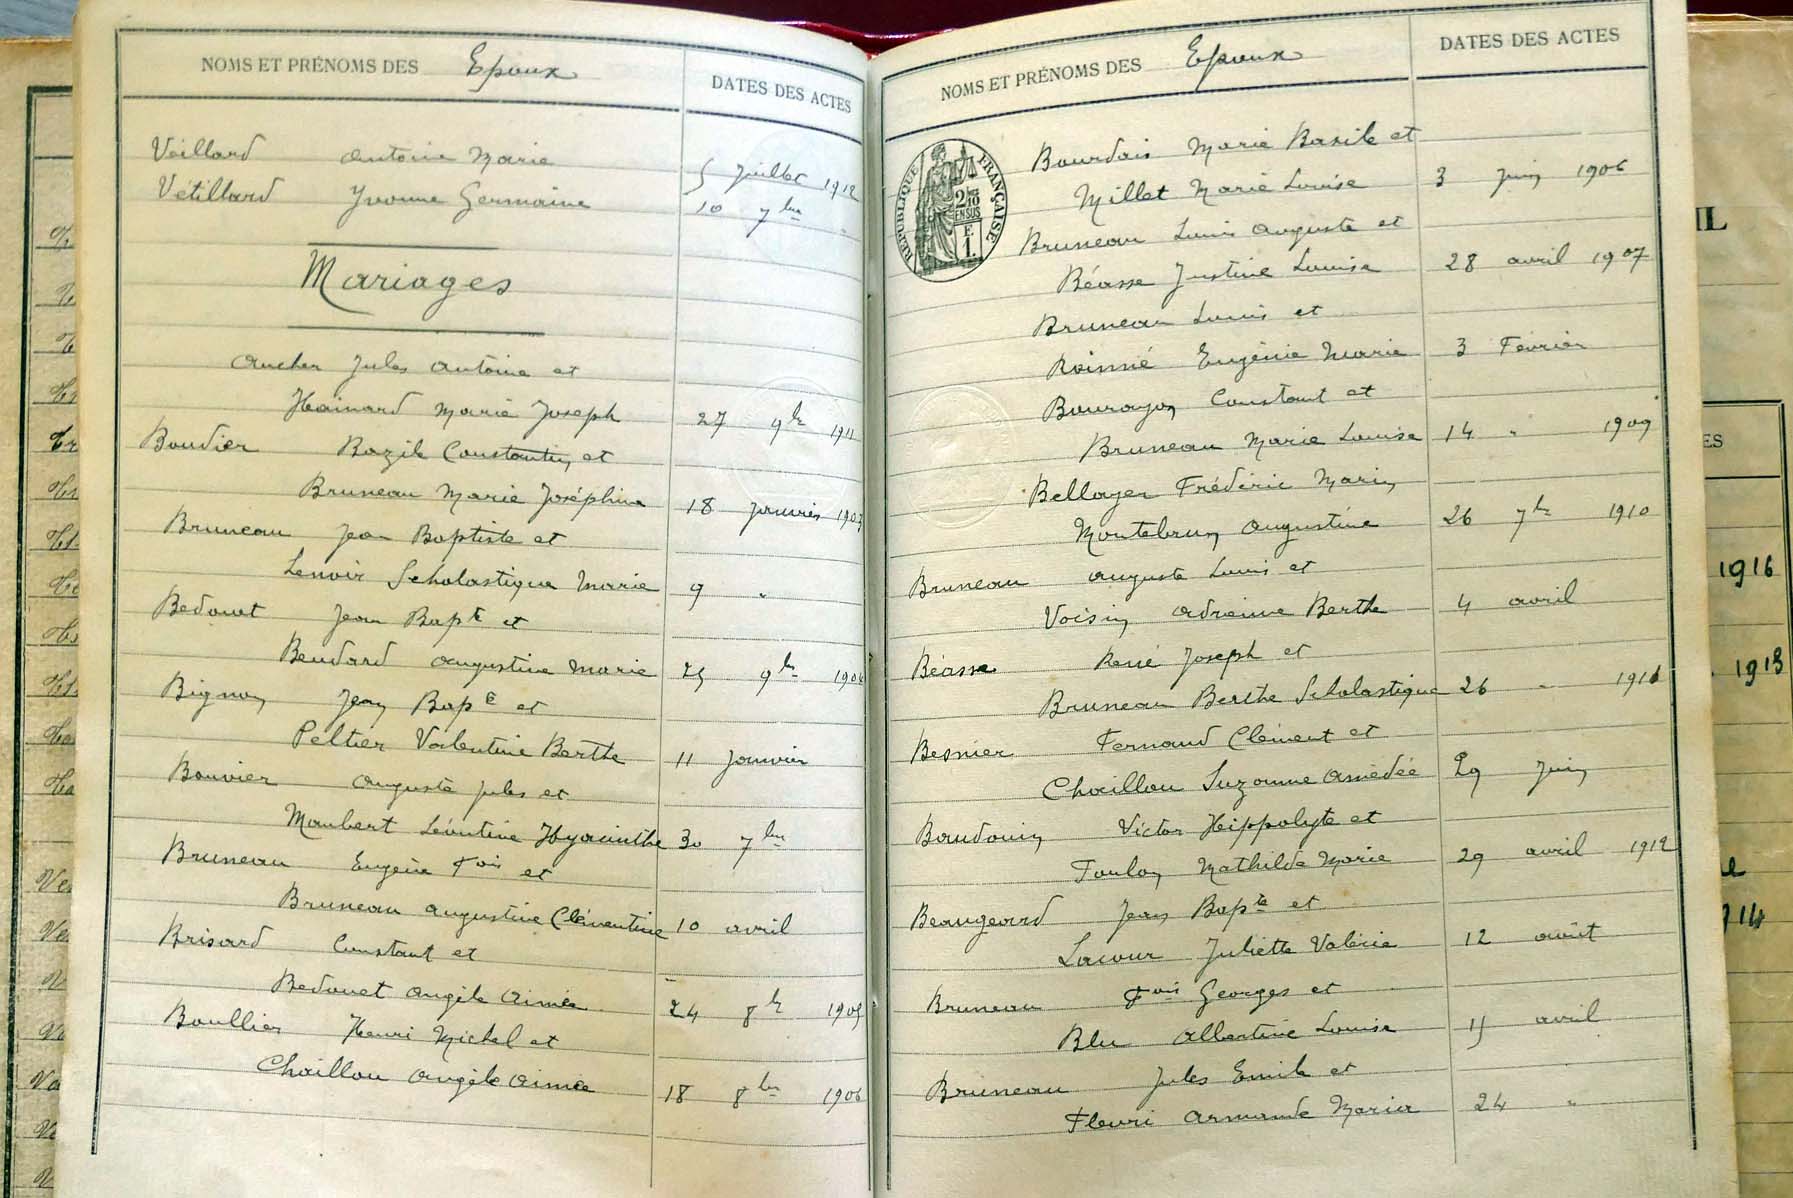 NOMS ET PRÉNOMS DES Epoux DATES DES ACTES
Veillard Antoine Marie 5 Juillet 1912
Vétillard Yvonne Germaine 10 7bre "
Mariages
Aucher Jules Antoine et
Hainard Marie Joseph 27 9bre 1911
Boudier Bazile Constantin et
Bruneau Marie Joséphine 18 Janvier 1903
Bruneau Jean Baptiste et
Lenoir Scholastique Marie 9 "
Bedouet Jean Bapte et
Beudard Augustine Marie 25 9bre 1904
Bignon Jean Bapte et
Peltier Valentine Berthe 11 Janvier
Bouvier Auguste Jules et
Maubert Léontine Hyacinthe 30 7bre
Bruneau Eugène Fois et
Bruneau Augustine Clémentine 10 avril
Brisard Constant et
Bedouet Angèle Aimée 24 8bre 1905
Boullier Henri Michel et
Chaillou Angèle Aimée 18 8bre 1906
NOMS ET PRÉNOMS DES Epoux DATES DES ACTES
RÉPUBLIQUE FRANÇAISE
2/10
EN SUS
F
1.
Bourdais Marie Basile et
Millet Marie Louise 3 Juin 1906
Bruneau Louis Auguste et
Béasse Justine Louise 28 avril 1907
Bruneau Louis et
Roinné Eugénie Marie 3 Février
Bourayon Constant et
Bruneau Marie Louise 14 " 1909
Bellayer Frédéric Marin
Montebrun Augustine 26 7bre 1910
Bruneau Auguste Louis et
Voisin Adreinne Berthe 4 avril
Béasse René Joseph et
Bruneau Berthe Scholastique 26 " 1911
Besnier Fernand Clément et
Chaillou Suzanne Amédée 29 Juin
Baudouin Victor Hippolyte et
Foulon Mathilde Marie 29 avril 1912
Beaugeard Jean Bapte et
Lacour Juliette Valérie 12 août
Bruneau Fois Georges et
Blu Albertine Louise 15 avril
Bruneau Jules Emile et
Fleuri Armande Maria 24 "
IL
ES
1916
1913
14